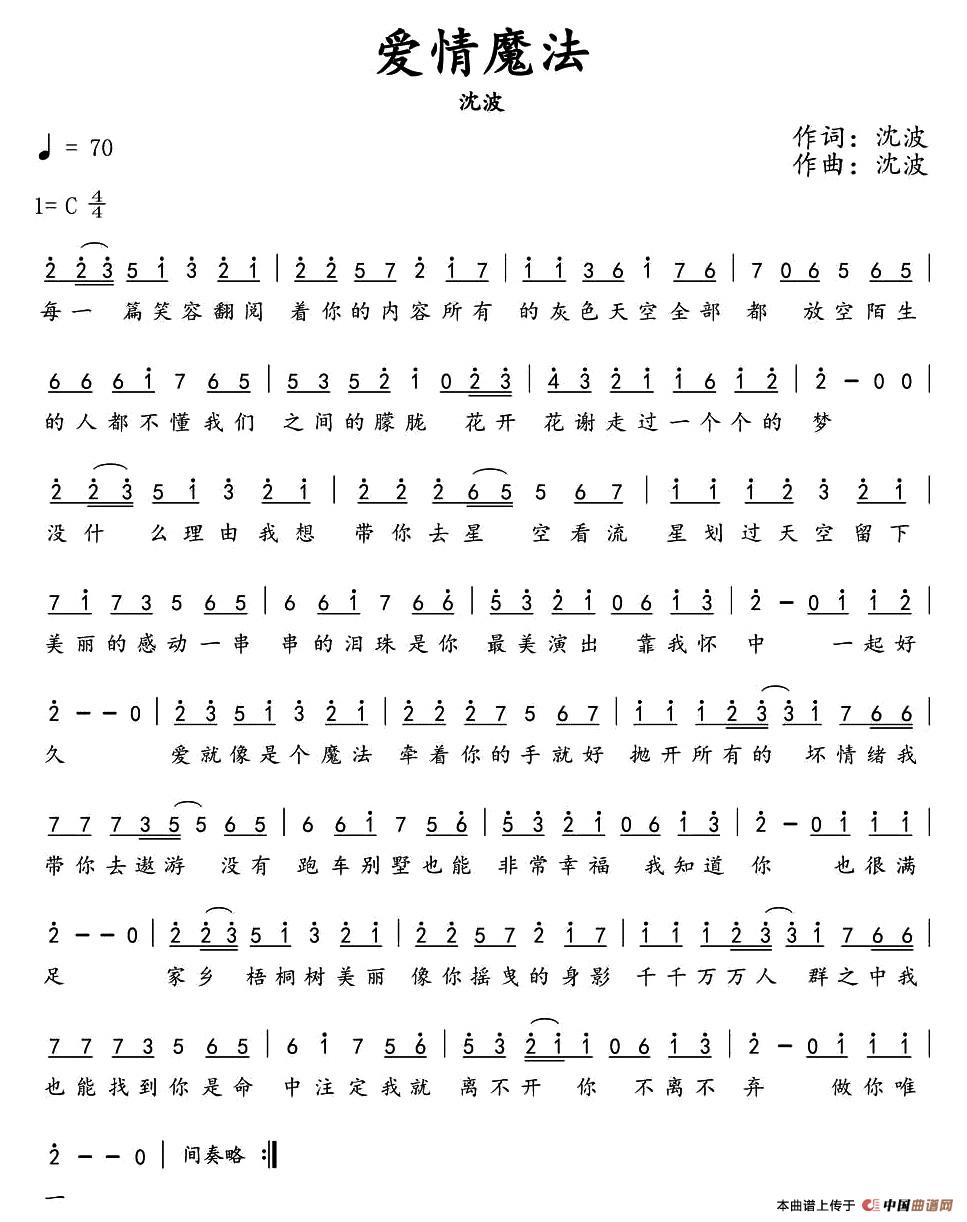 爱情魔法
沈波
♩ = 70
作词：沈波
作曲：沈波
1= C 4/4
2 2 3 5 1 3 2 1 | 2 2 5 7 2 1 7 | 1 1 3 6 1 7 6 | 7 0 6 5 6 5 |
每一 篇笑容翻阅 着你的内容所有 的灰色天空全部 都 放空陌生
6 6 6 1 7 6 5 | 5 3 5 2 1 0 2 3 | 4 3 2 1 1 6 1 2 | 2 — 0 0 |
的人都不懂我们 之间的朦胧 花开 花谢走过一个个的 梦
2 2 3 5 1 3 2 1 | 2 2 2 6 5 5 6 7 | 1 1 1 2 3 2 1 |
没什 么理由我想 带你去星 空看流 星划过天空留下
7 1 7 3 5 6 5 | 6 6 1 7 6 6 | 5 3 2 1 0 6 1 3 | 2 — 0 1 1 2 |
美丽的感动一串 串的泪珠是你 最美演出 靠我怀 中 一起好
2 — — 0 | 2 3 5 1 3 2 1 | 2 2 2 7 5 6 7 | 1 1 1 2 3 3 1 7 6 6 |
久 爱就像是个魔法 牵着你的手就好 抛开所有的 坏情绪我
7 7 7 3 5 5 6 5 | 6 6 1 7 5 6 | 5 3 2 1 0 6 1 3 | 2 — 0 1 1 1 |
带你去遨游 没有 跑车别墅也能 非常幸福 我知道 你 也很满
2 — — 0 | 2 2 3 5 1 3 2 1 | 2 2 5 7 2 1 7 | 1 1 1 2 3 3 1 7 6 6 |
足 家乡 梧桐树美丽 像你摇曳的身影 千千万万人 群之中我
7 7 7 3 5 6 5 | 6 1 7 5 6 | 5 3 2 1 1 0 6 1 3 | 2 — 0 1 1 1 |
也能找到你是命 中注定我就 离不开 你 不离不 弃 做你唯
2 — — 0 | 间奏略 :‖
一
本曲谱上传于 中国曲谱网